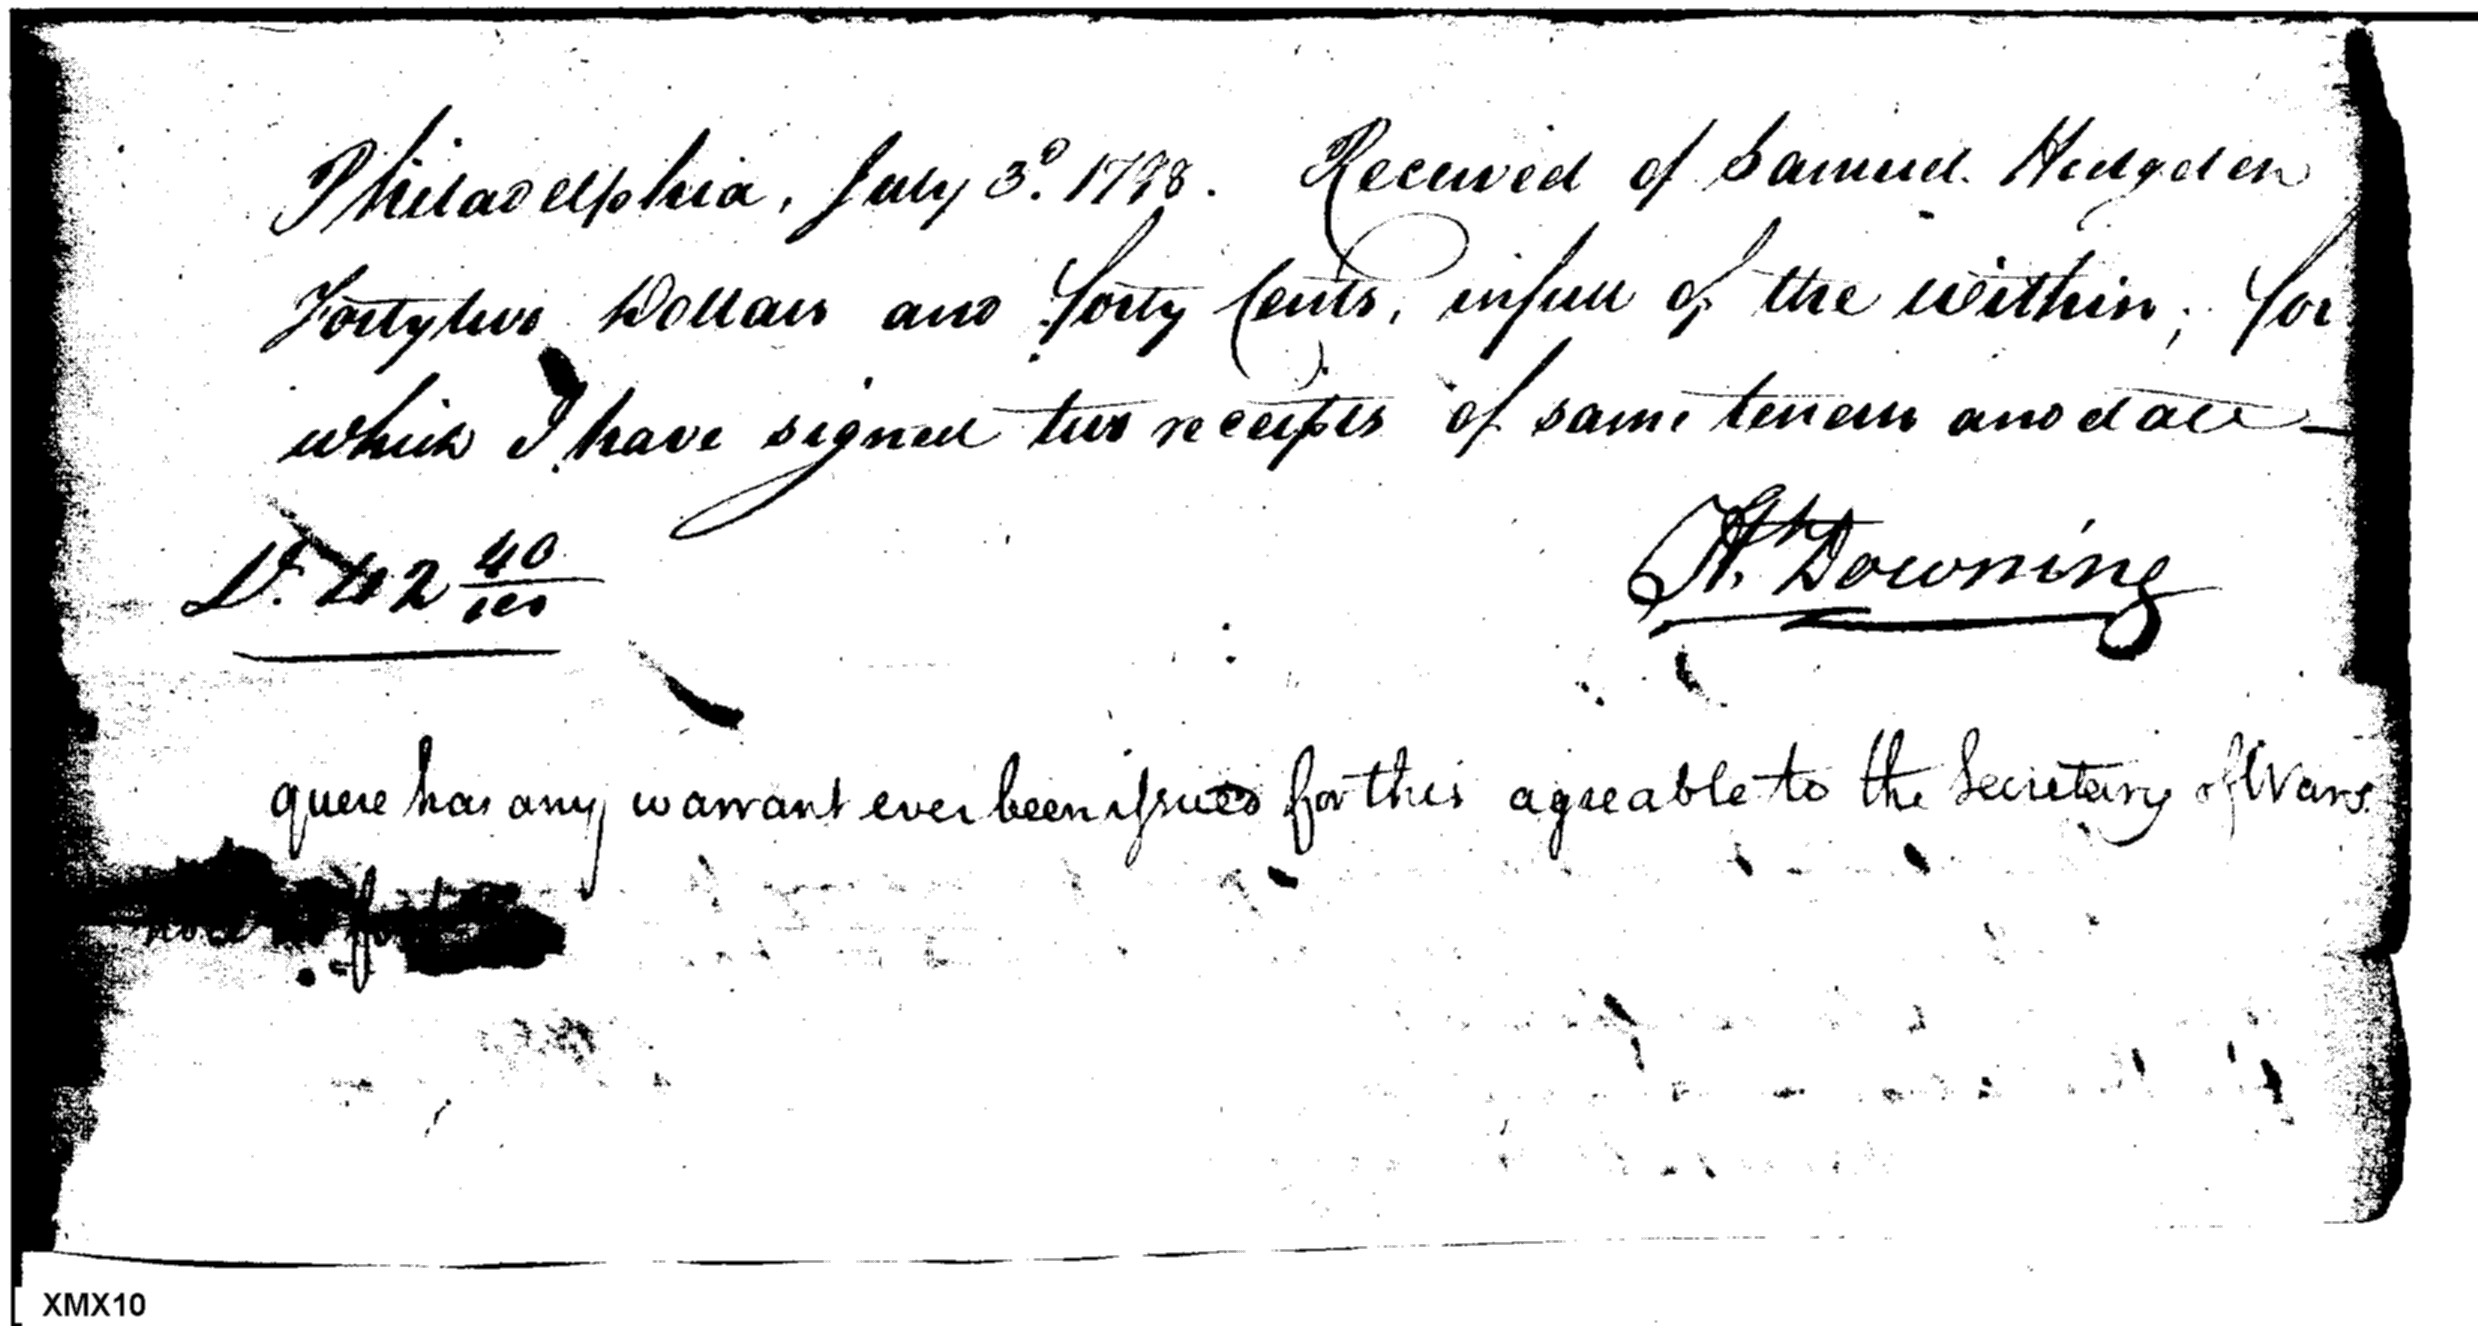 Philadelphia, July 3d. 1798. Received of Samuel Hodgdon
Fortytwo Dollars and forty Cents, in full of the within; for
which I have signed two receipts of same tenor and date
D. 42 40/100
Jh. Downing
quere has any warrant ever been issued for this agreable to the Secretary of Wars
XMX10